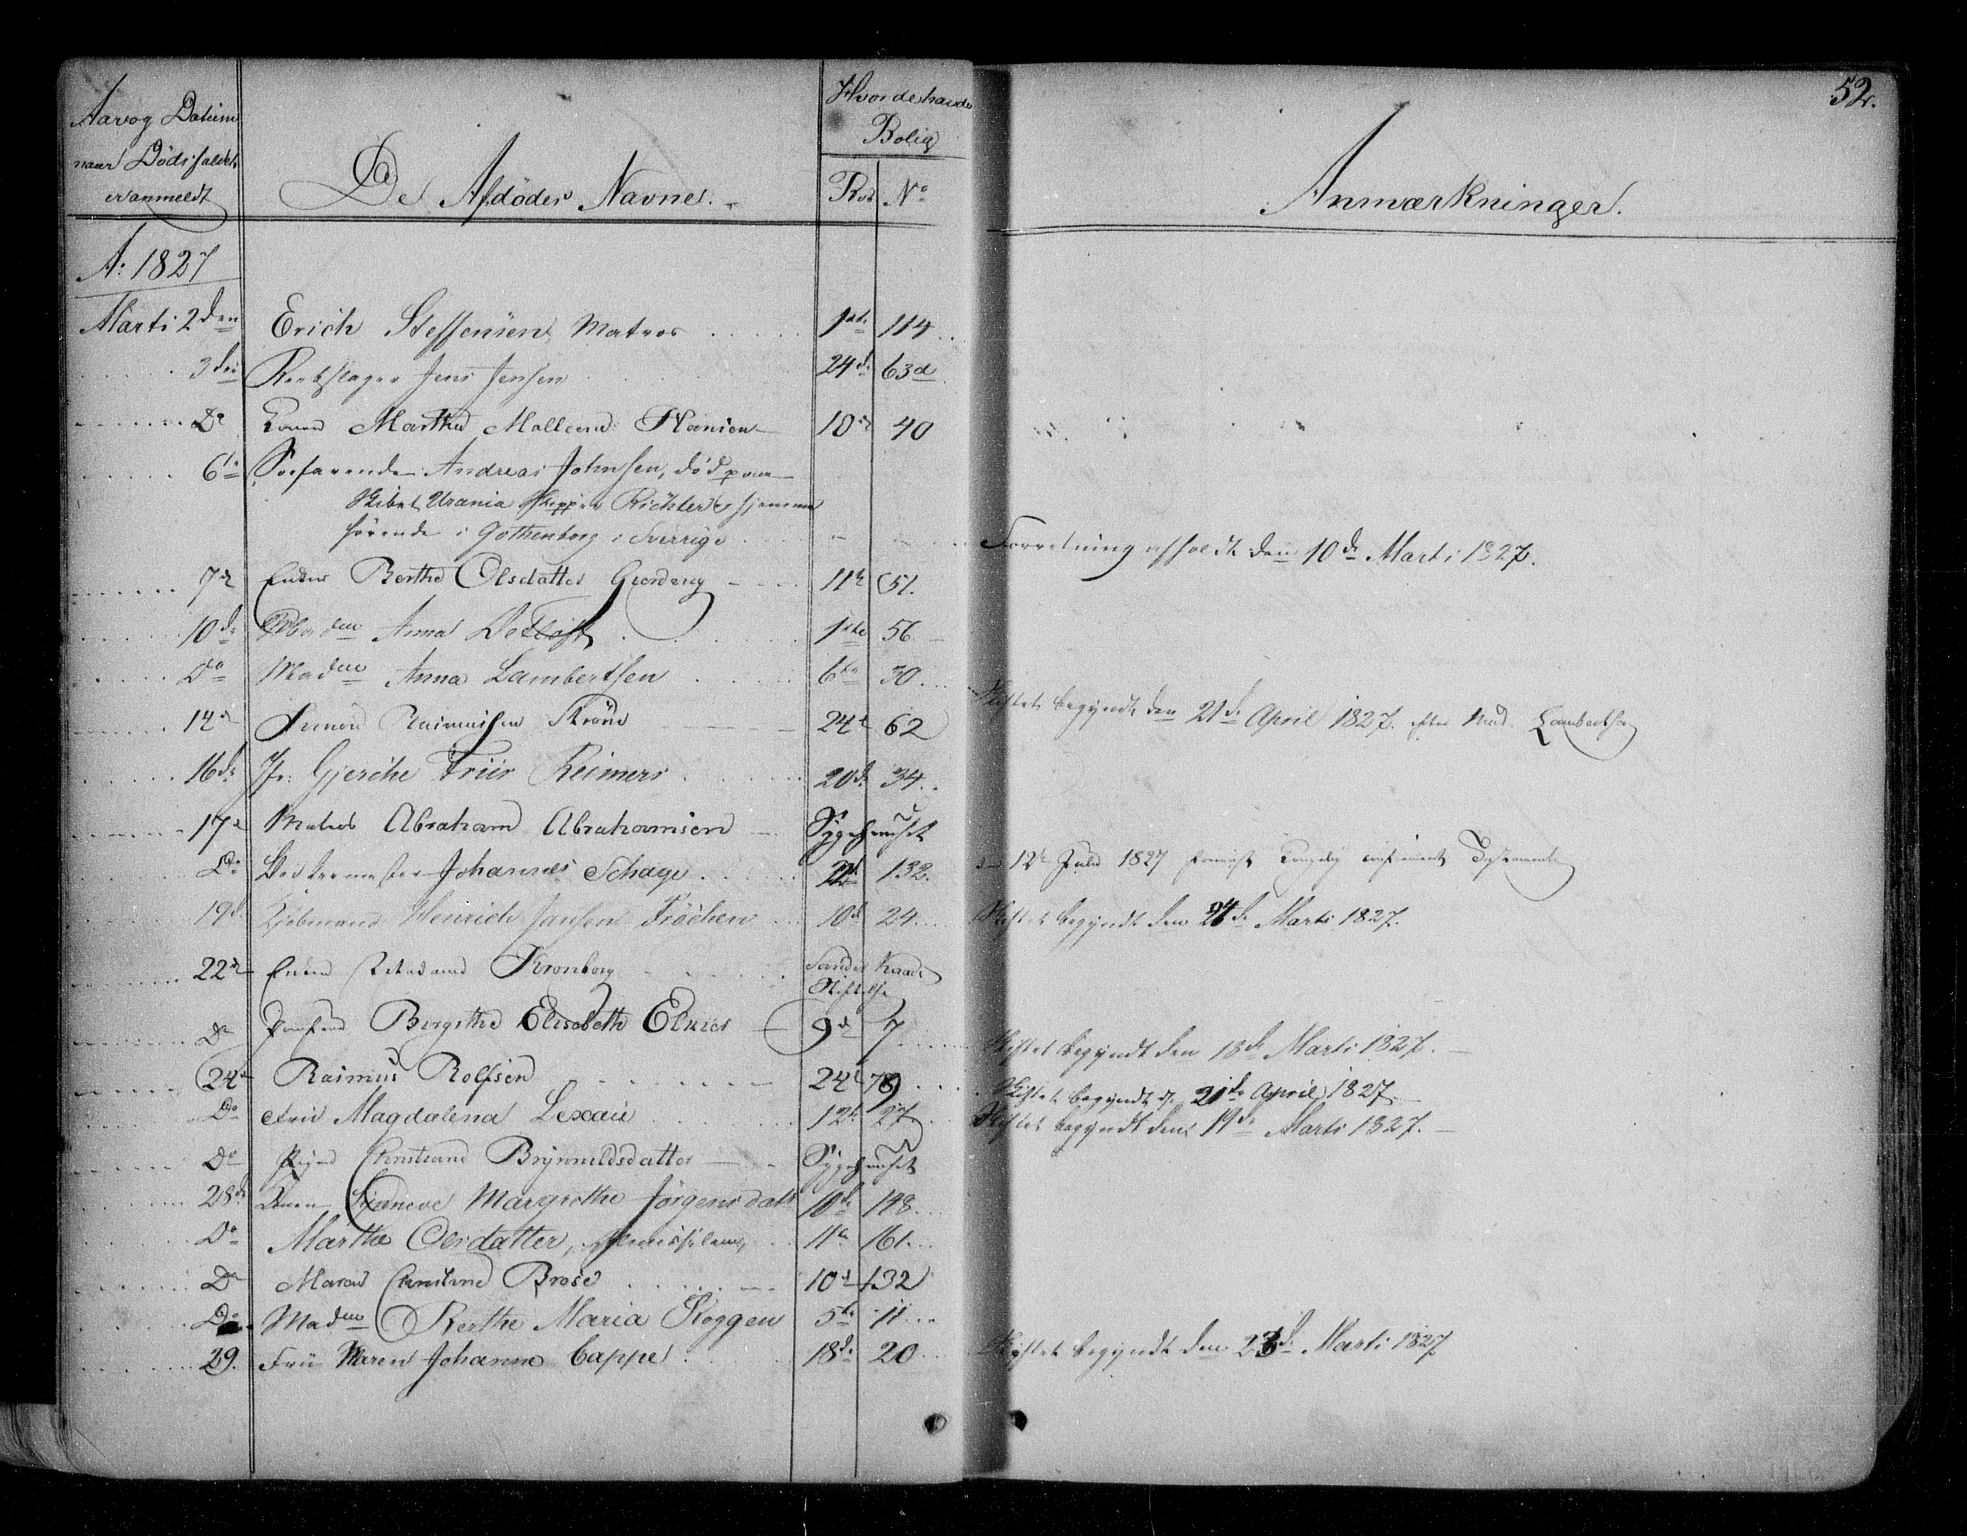 52.
Aar og Datum
naar Dødsfaldet
er anmeldt
De Afdødes Navne.
Hvor de havde
Bolig
Rod No
Anmærkninger.
A: 1827
Marti 2den Erich Steffensen Matros 1ste 114
3die Reebslager Jens Jensen 24de 63d
Do Konen Marthe Malleene Hansen 10de 40
6te Søefarende Andreas Johnsen, død paa
Skibet Urania Skipper Richter hjemme
hørende i Gothenborg i Sverrige
Forretning afholdt den 10de Marti 1827.
7de Enken Berthe Olsdatter 11te 51.
10de Madme Anna Detloff 1ste 56
Do Madme Anna Lambertsen 6te 30
Skiftet begyndt den 21de April 1827. efter Mad. Lambertsen
14de Simon Rasmusen Strøm 24de 62
16de Jfr: Gjersche Friis Reimers 20de 34
17de Matros Abraham Abrahamsen Sygehuuset
Do Johannes Schage 132
12te Julii 1827 Testamente
19de Kjøbmand Henrich Jansen Frøchen 10de 24
Skiftet begyndt den 24de Marti 1827.
22de Enken Kronborg Sanders Raae
Stiftelse
Do Jomfrue Birgithe Elisabeth 9de 7
Skiftet begyndt den 18de Marti 1827.
24de Rasmus Rolfsen 24de 79
Skiftet begyndt d. 21de April 1827.
Do Frue Magdalena Lexau 12te 27
Skiftet begyndt den 19de Marti 1827.
Do Pigen Christiane Brynnildsdatter Sygehuuset
28de Konen Margrethe Jørgensdatt 10de 148
Do Marthe Olsdatter, 11te 161.
Do Maren Christine Brose 10de 132
Do Madme Berthe Maria Koggen 5te 11
29. Frue Maren Johanna Cappe 18de 20
Skiftet begyndt den 23de Marti 1827